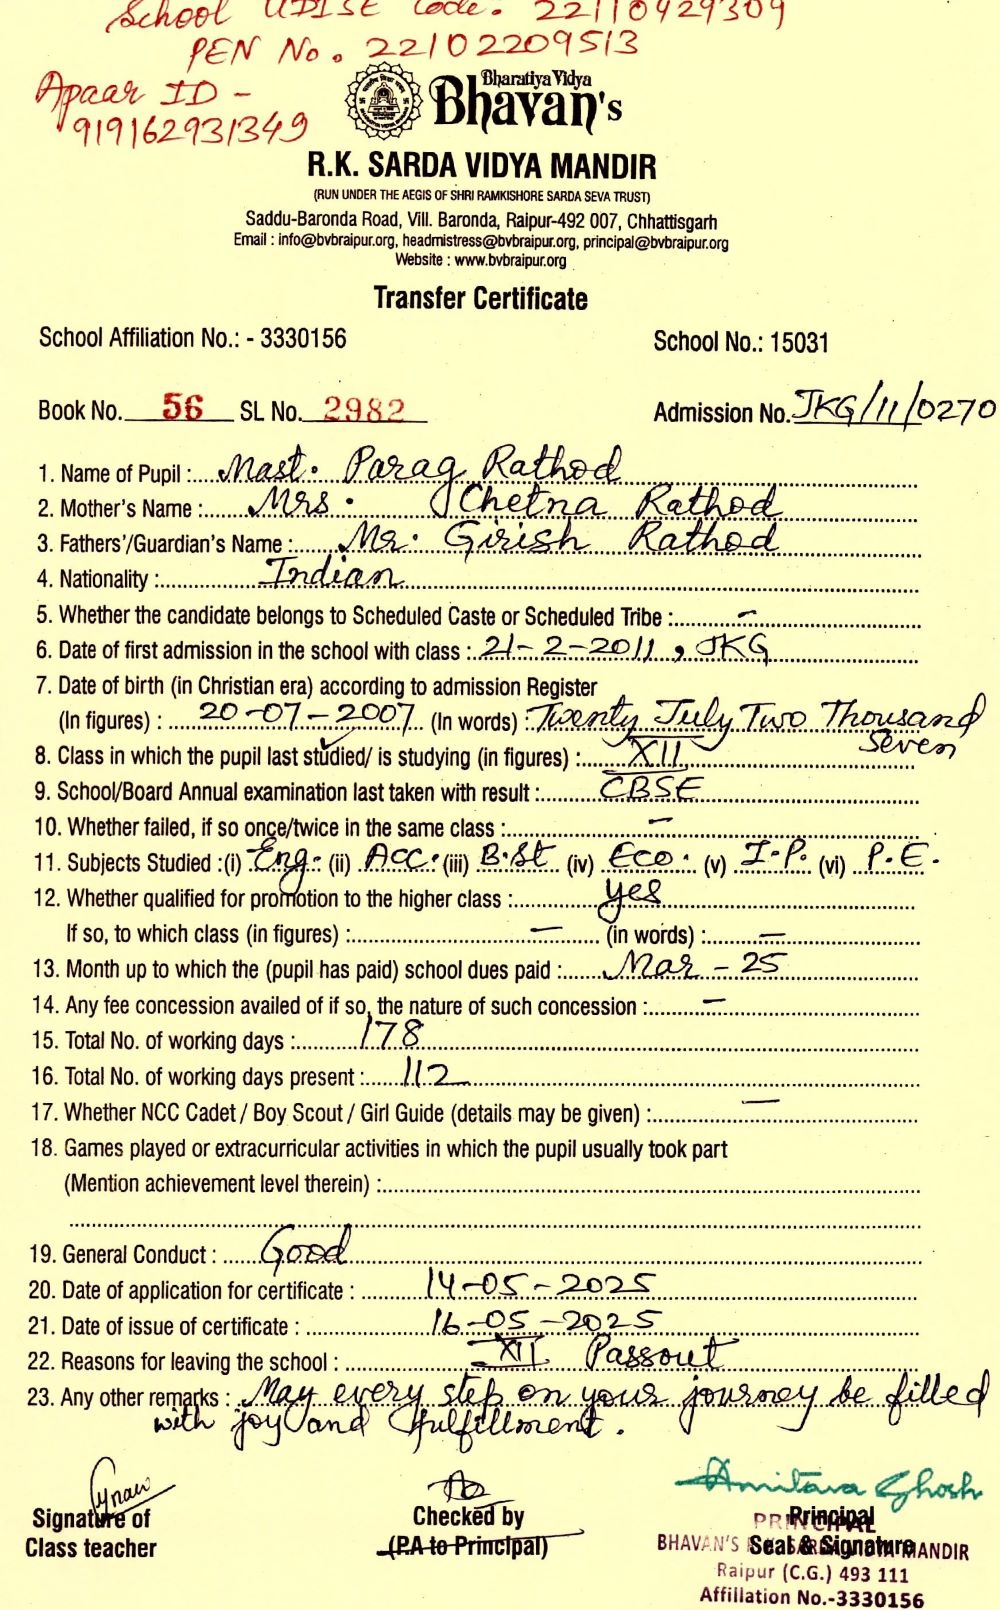 School UDISE Code: 22110429309
PEN No. 22102209513
Apaar ID -
919162931349
Bharatiya Vidya
Bhavan's
R.K. SARDA VIDYA MANDIR
(RUN UNDER THE AEGIS OF SHRI RAMKISHORE SARDA SEVA TRUST)
Saddu-Baronda Road, Vill. Baronda, Raipur-492 007, Chhattisgarh
Email : info@bvbraipur.org, headmistress@bvbraipur.org, principal@bvbraipur.org
Website : www.bvbraipur.org
Transfer Certificate
School Affiliation No.: - 3330156 School No.: 15031
Book No. 56 SL No. 2982 Admission No. JKG/11/0270
1. Name of Pupil : Mast. Parag Rathod
2. Mother's Name : Mrs. Chetna Rathod
3. Fathers'/Guardian's Name : Mr. Girish Rathod
4. Nationality : Indian
5. Whether the candidate belongs to Scheduled Caste or Scheduled Tribe : -
6. Date of first admission in the school with class : 21-2-2011, JKG
7. Date of birth (in Christian era) according to admission Register
(In figures) : 20-07-2007 (In words) : Twenty July Two Thousand
Seven
8. Class in which the pupil last studied/ is studying (in figures) : XII
9. School/Board Annual examination last taken with result : CBSE
10. Whether failed, if so once/twice in the same class : -
11. Subjects Studied :(i) Eng. (ii) Acc. (iii) B.St (iv) Eco. (v) I.P. (vi) P.E.
12. Whether qualified for promotion to the higher class : yes
If so, to which class (in figures) : - (in words) : -
13. Month up to which the (pupil has paid) school dues paid : Mar - 25
14. Any fee concession availed of if so, the nature of such concession : -
15. Total No. of working days : 178
16. Total No. of working days present : 112
17. Whether NCC Cadet / Boy Scout / Girl Guide (details may be given) : -
18. Games played or extracurricular activities in which the pupil usually took part
(Mention achievement level therein) :
19. General Conduct : Good
20. Date of application for certificate : 14-05-2025
21. Date of issue of certificate : 16-05-2025
22. Reasons for leaving the school : XII Passout
23. Any other remarks : May every step on your journey be filled
with joy and fulfillment.
Amitava Ghosh
Signature of Checked by Principal
PRINCIPAL
Class teacher (P.A to Principal) Seal & Signature
BHAVAN'S R.K. SARDA VIDYA MANDIR
Raipur (C.G.) 493 111
Affillation No.-3330156